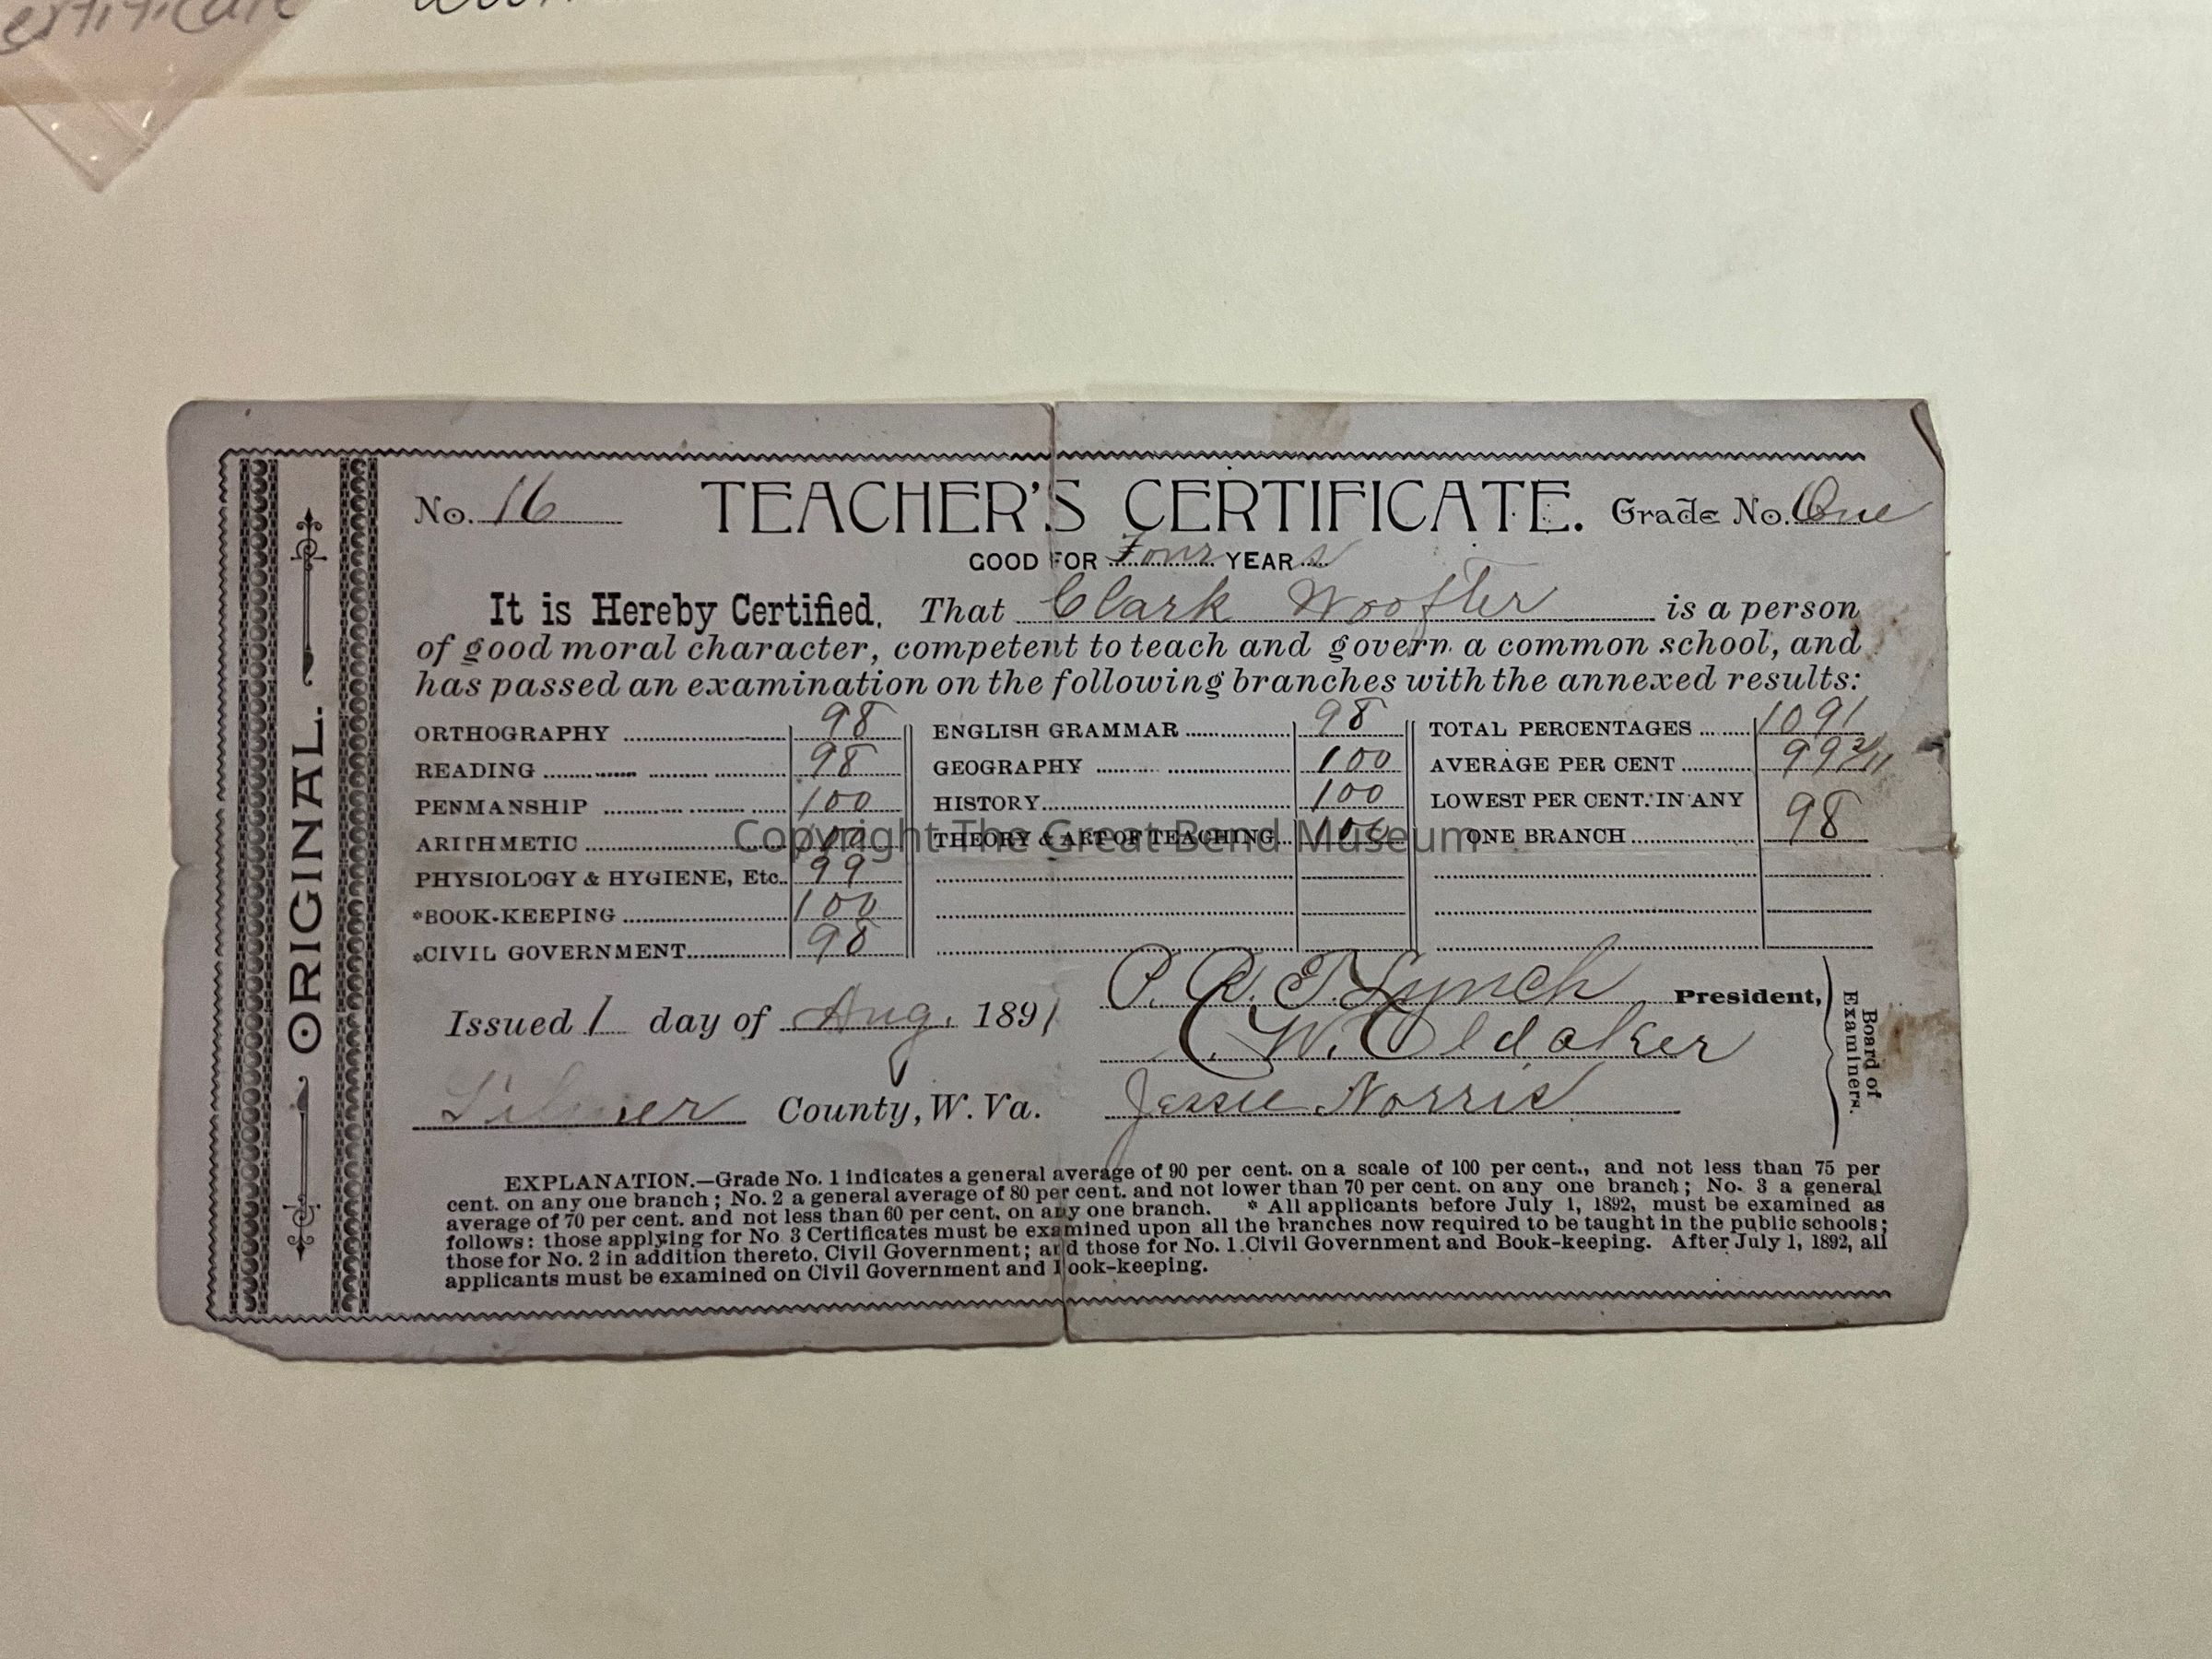 ertificate
ORIGINAL.
No. 16 TEACHER'S CERTIFICATE. Grade No. One
GOOD FOR Four YEARs
It is Hereby Certified, That Clark Woofter is a person
of good moral character, competent to teach and govern a common school, and
has passed an examination on the following branches with the annexed results:
ORTHOGRAPHY 98 ENGLISH GRAMMAR 98 TOTAL PERCENTAGES 1091
READING 98 GEOGRAPHY 100 AVERAGE PER CENT 99 2/11
PENMANSHIP 100 HISTORY 100 LOWEST PER CENT. IN ANY
ARITHMETIC 100 THEORY & ART OF TEACHING 100 ONE BRANCH 98
Copyright The Great Bend Museum
PHYSIOLOGY & HYGIENE, Etc. 99
*BOOK-KEEPING 100
*CIVIL GOVERNMENT 98
Issued 1 day of Aug. 1891 P. R. E. T. Lynch President,
C. W. Oldaker
Gilmer County, W. Va. Jessie Norris
Board of
Examiners.
EXPLANATION.—Grade No. 1 indicates a general average of 90 per cent. on a scale of 100 per cent., and not less than 75 per
cent. on any one branch; No. 2 a general average of 80 per cent. and not lower than 70 per cent. on any one branch; No. 3 a general
average of 70 per cent. and not less than 60 per cent. on any one branch. * All applicants before July 1, 1892, must be examined as
follows: those applying for No 3 Certificates must be examined upon all the branches now required to be taught in the public schools;
those for No. 2 in addition thereto, Civil Government; and those for No. 1 Civil Government and Book-keeping. After July 1, 1892, all
applicants must be examined on Civil Government and Book-keeping.